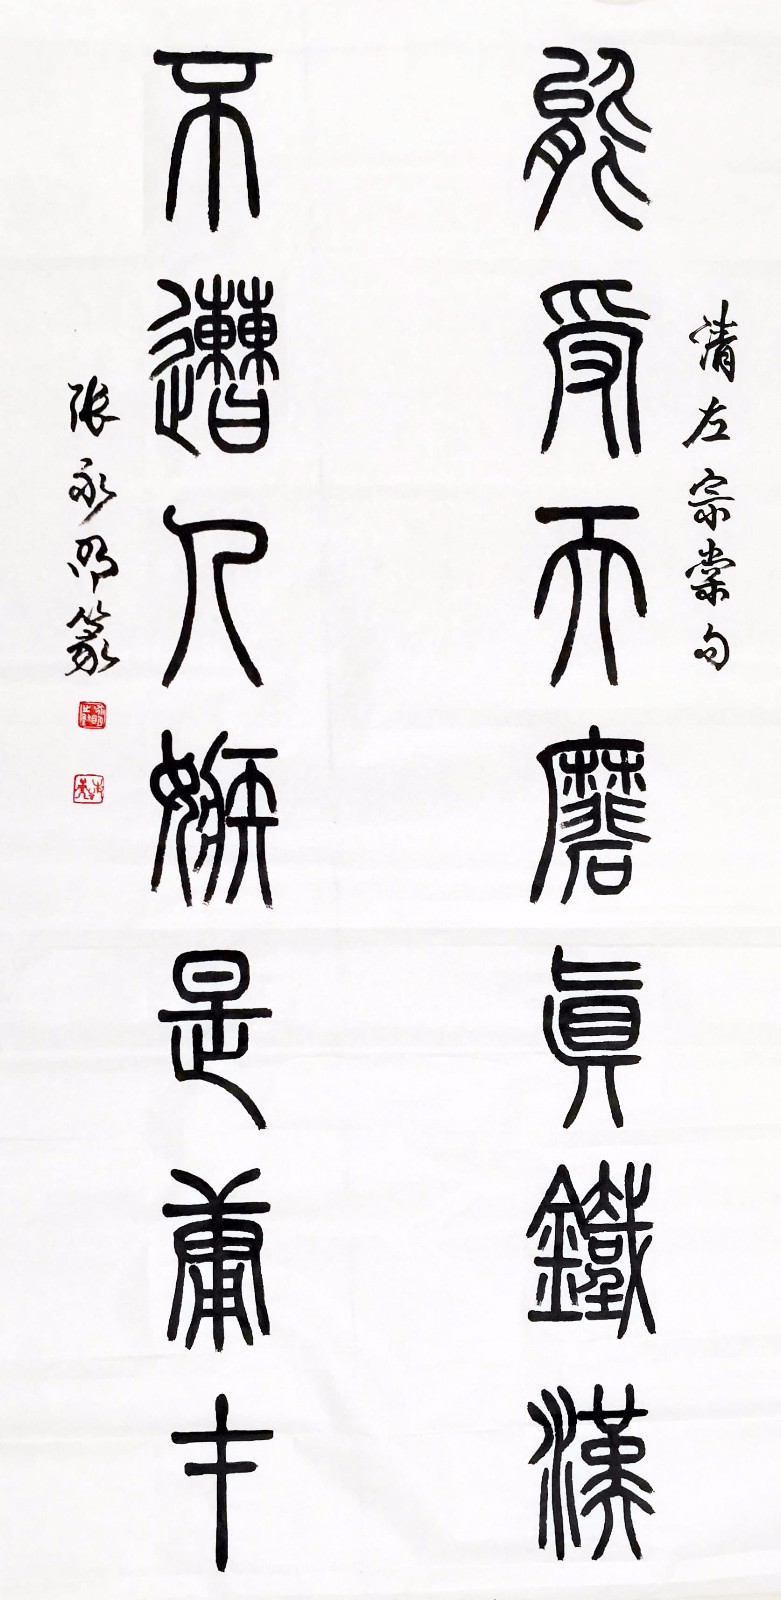 清左宗棠句
能受天磨真鐵漢
不遭人嫉是庸才
张永明篆